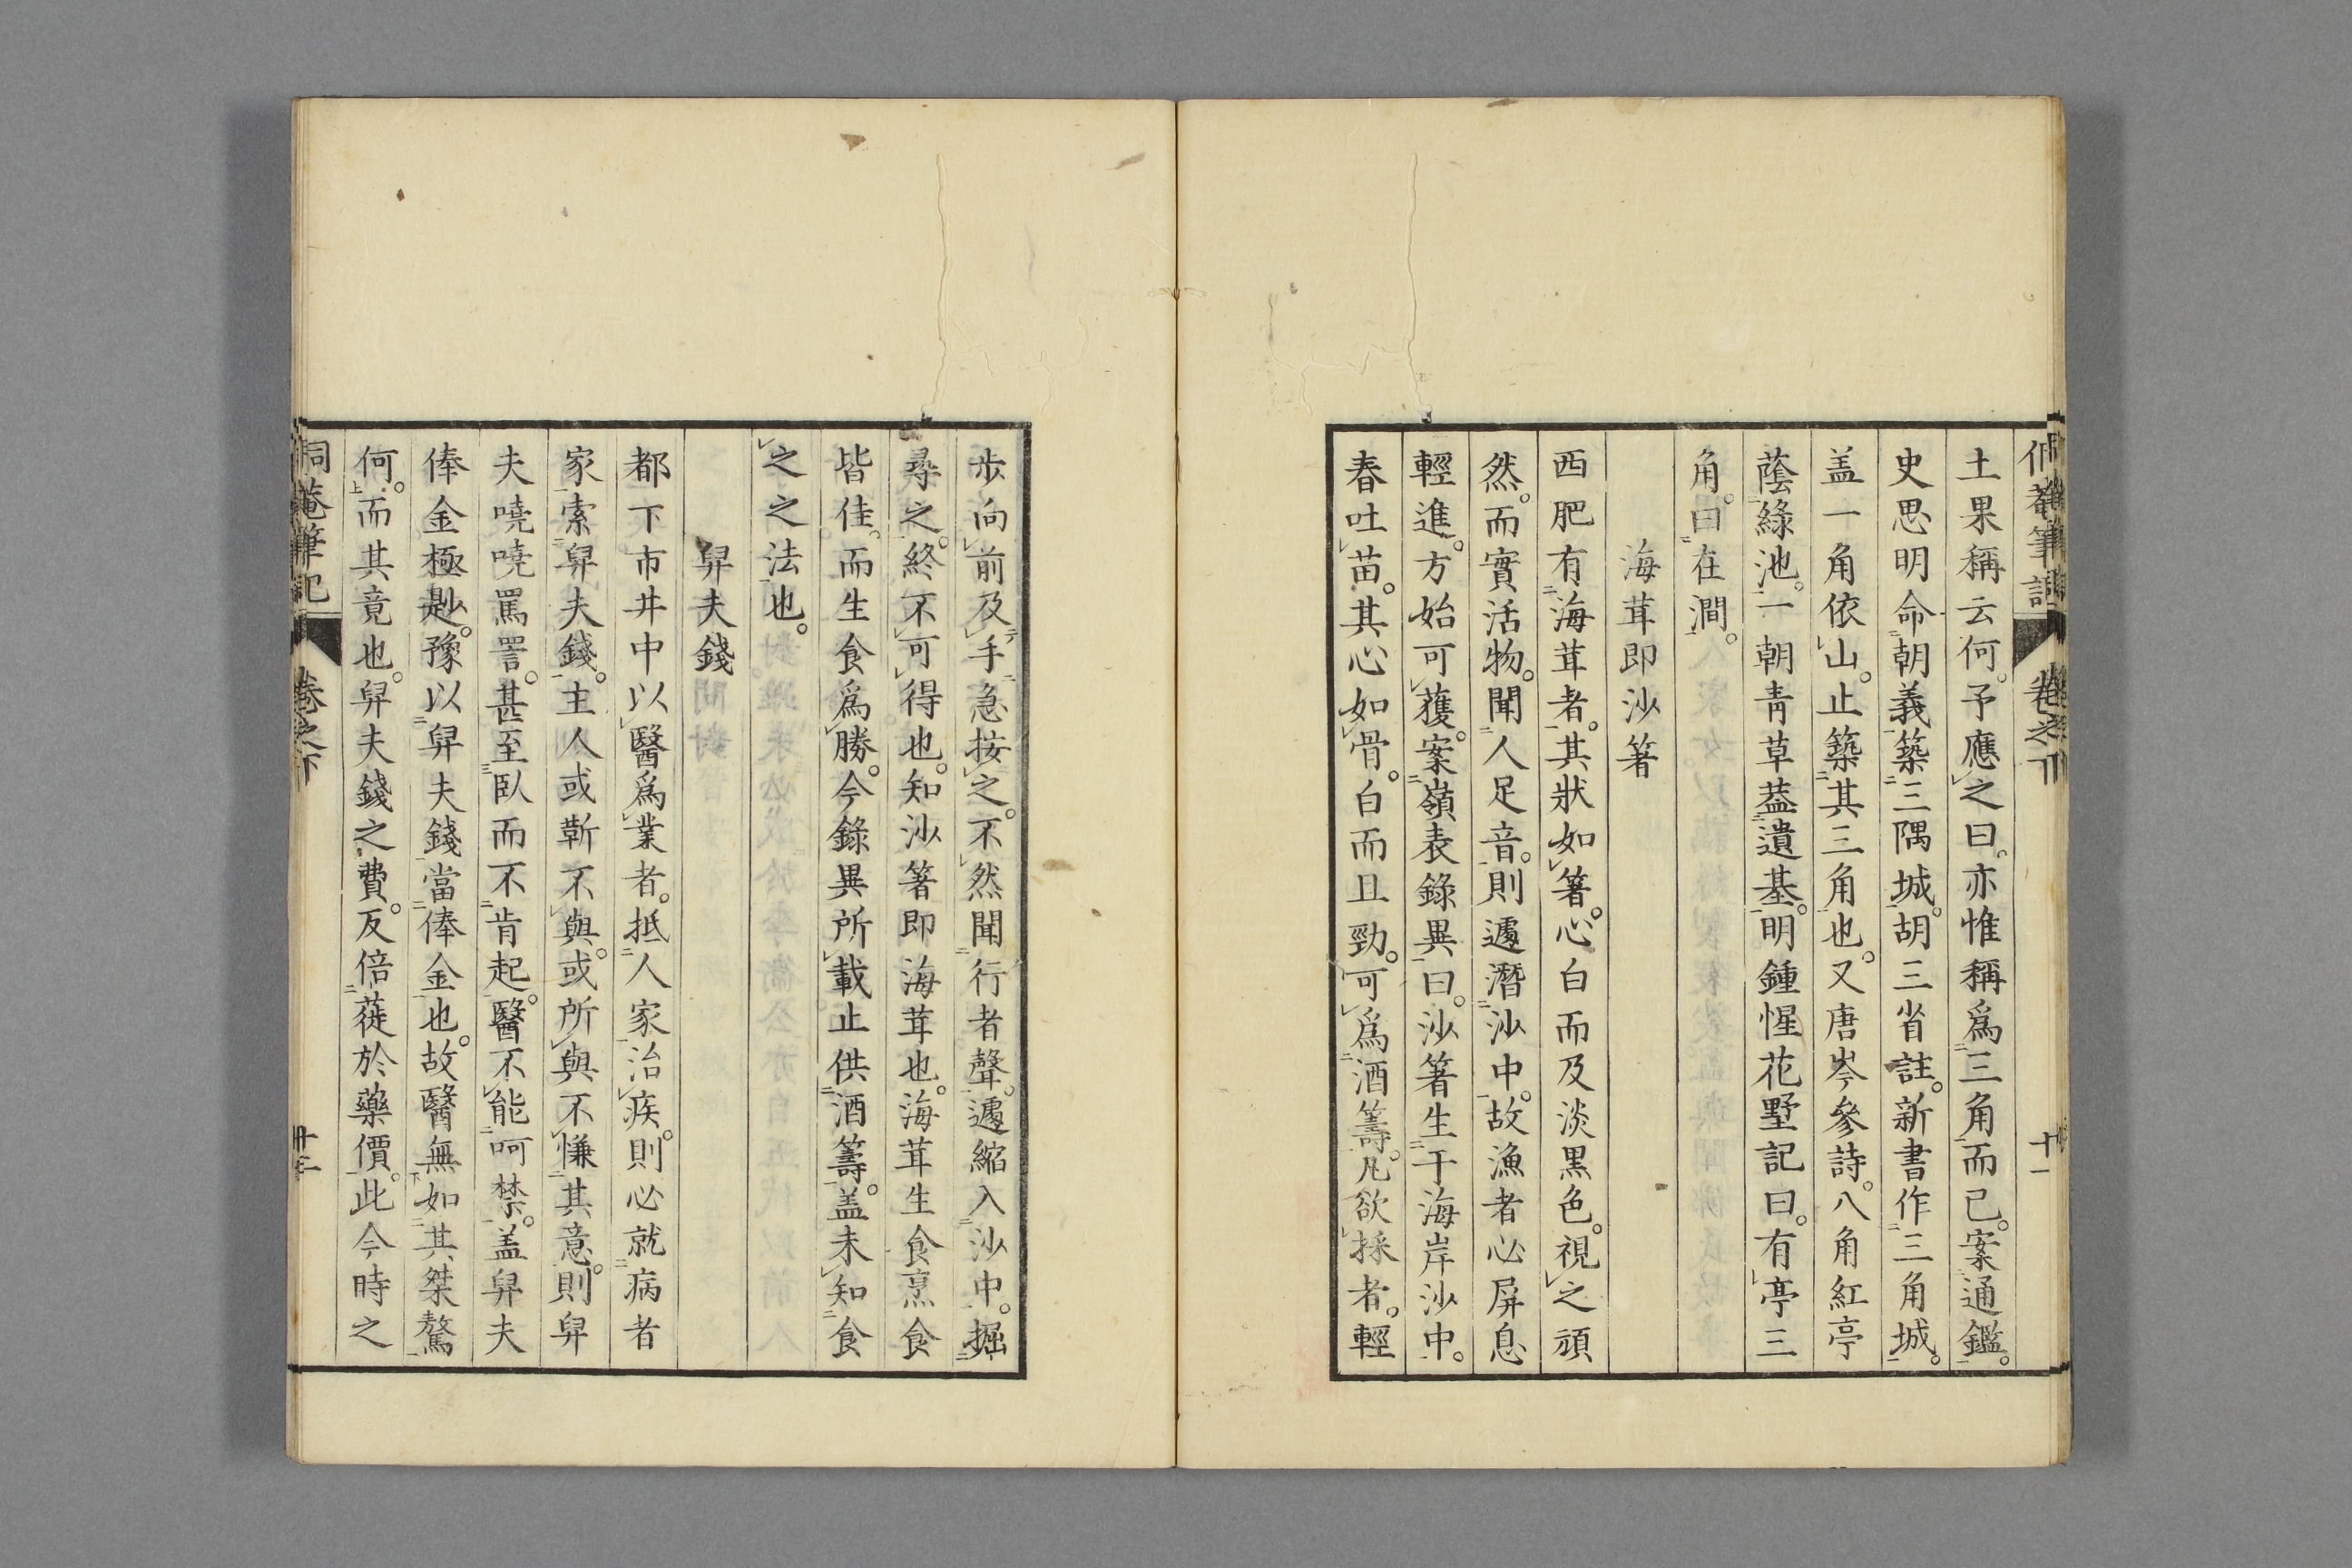 侗菴筆記 卷之下 十一
土果稱云何。予應之曰。亦惟稱爲三角而已。案通鑑。
史思明命朝義築三隅城。胡三省註。新書作三角城。
盖一角依山。止築其三角也。又唐岑參詩。八角紅亭
蔭綠池。一朝青草葢遺基。明鍾惺花墅記曰。有亭三
角。曰在澗。
海茸即沙箸
西肥有海茸者。其狀如箸。心白而及淡黑色。視之頑
然。而實活物。聞人足音。則遽潛沙中。故漁者必屏息
輕進。方始可獲。案嶺表錄異曰。沙箸生于海岸沙中。
春吐苗。其心如骨。白而且勁。可爲酒籌。凡欲採者。輕
步向前及手急按之。不然聞行者聲。遽縮入沙中。掘
尋之。終不可得也。知沙箸即海茸也。海茸生食烹食
皆佳。而生食爲勝。今錄異所載止供酒籌。盖未知食
之之法也。
舁夫錢
都下市井中以醫爲業者。抵人家治疾。則必就病者
家索舁夫錢。主人或靳不與。或所與不慊其意。則舁
夫嘵嘵罵詈。甚至臥而不肯起。醫不能呵禁。盖舁夫
俸金極尟。豫以舁夫錢當俸金也。故醫無如其桀驁
何。而其竟也。舁夫錢之費。反倍蓰於藥價。此今時之
侗菴筆記 卷之下